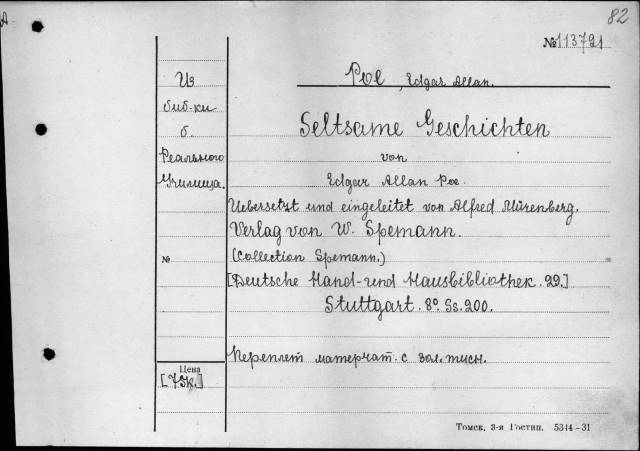 82
№ 113791
Poe, Edgar Allan.
Из
биб-ки
б.
Реального
Училища.
Seltsame Geschichten
von
Edgar Allan Poe.
Uebersetzt und eingeleitet von Alfred Mürenberg.
Verlag von W. Spemann.
(Collection Spemann.)
[Deutsche Hand- und Hausbibliothek. 29.]
Stuttgart. 8º. Ss. 200.
№
Переплет матерчат. с зол. тисн.
Цена
[75к.]
Томск, 3-я Гостип. 5344-31